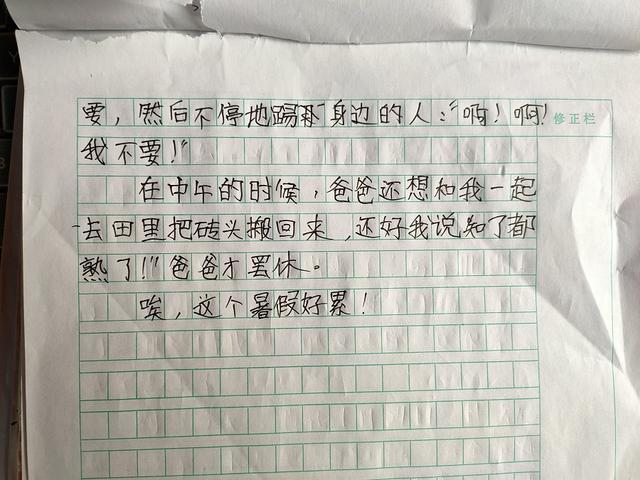 要，然后不停地踢身边的人：“啊！啊！
修正栏
我不要！”
在中午的时候，爸爸还想和我一起
去田里把砖头搬回来，还好我说知了都
熟了！”爸爸才罢休。
唉，这个暑假好累！